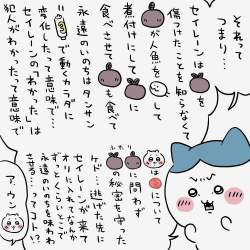 それって
つまり…
セイレーンは が
傷つけたことを知らなくて
が人魚を して
煮付けにして に
食べさせて も食べて
永遠のいのちはタンサン
で動くカラダに
変化したって意味で…
セイレーンの"わかった"は
犯人がわかったって意味で
は について
に問わず
の秘密を守った
ふたり
ケド… 逃げた先に
セイレーンが来て
オリに入れてなんか
ずっとくらいとこで
永遠のいのちを味わわ
させる…ってコト!?
アウン